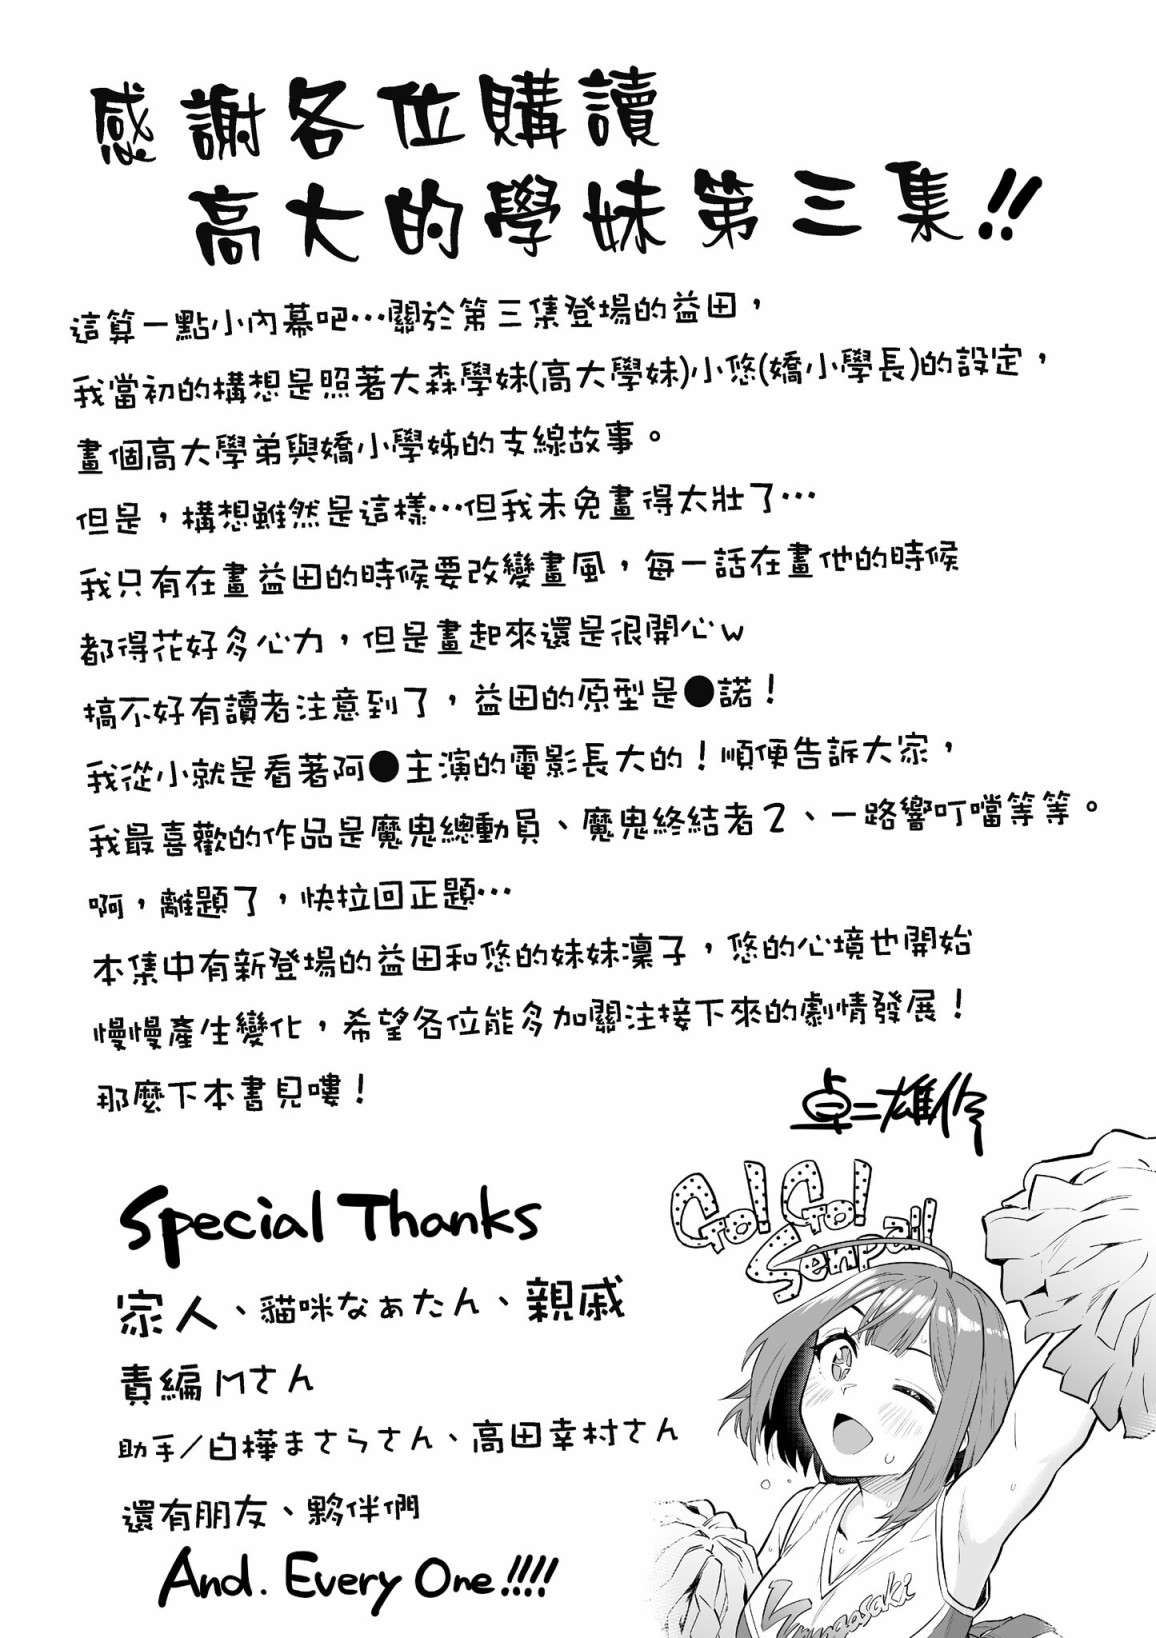 感謝各位購讀
高大的學妹第三集!!
這算一點小內幕吧…關於第三集登場的益田，
我當初的構想是照著大森學妹(高大學妹)小悠(嬌小學長)的設定，
畫個高大學弟與嬌小學姊的支線故事。
但是，構想雖然是這樣…但我未免畫得太壯了…
我只有在畫益田的時候要改變畫風，每一話在畫他的時候
都得花好多心力，但是畫起來還是很開心w
搞不好有讀者注意到了，益田的原型是●諾！
我從小就是看著阿●主演的電影長大的！順便告訴大家，
我最喜歡的作品是魔鬼總動員、魔鬼終結者２、一路響叮噹等等。
啊，離題了，快拉回正題…
本集中有新登場的益田和悠的妹妹凜子，悠的心境也開始
慢慢產生變化，希望各位能多加關注接下來的劇情發展！
那麼下本書見嘍！
Special Thanks
家人、貓咪なぁたん、親戚
責編Mさん
助手/白樺まさらさん、高田幸村さん
還有朋友、夥伴們
And. Every One!!!!
Go! Go!
Senpai!!